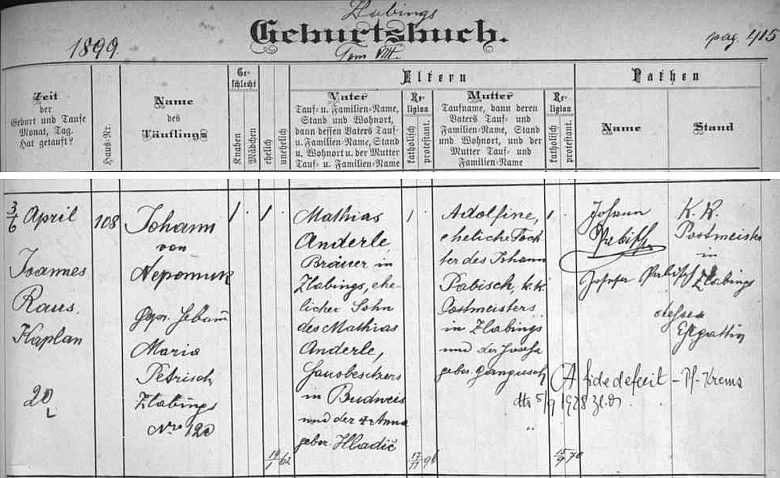 Zlabings
1899.
Geburtsbuch.
Tom VIII.
pag. 415
Zeit
der
Geburt und Taufe
Monat, Tag.
Hat getauft?
Haus-Nr.
Name
des
Täuflings
Ge-
schlecht
Knaben
Mädchen
ehelich
unehelich
Eltern
Vater
Tauf- u. Familien-Name,
Stand und Wohnort,
dann dessen Vaters Tauf-
u. Familien-Name, Stand
u. Wohnort u. der Mutter
Tauf- u. Familien-Name
Re-
ligion
katholisch
protestant.
Mutter
Taufname, dann deren
Vaters Tauf- und
Familien-Name, Stand
und Wohnort, und der
Mutter Tauf- und
Familien-Name
Re-
ligion
katholisch
protestant.
Pathen
Name
Stand
3/6 April
Joannes
Raus,
Kaplan
20
108
Johann
von
Nepomuk
Gepr. Hebam̄
Maria
Petrisch
Zlabings
Nro 120
1
1
Mathias
Anderle,
Bräuer in
Zlabings, ehe-
licher Sohn
des Mathias
Anderle,
Hausbesitzers
in Budweis
und der Anna
gebor. Hladič
62
1
Adolfine,
eheliche Toch
ter des Johann
Pabisch, k.k.
Postmeisters
in Zlabings
und der Josefa
gebor.
1
70
Johann
Pabisch
Josefa Pabisch
K. K.
Postmeister
in
Zlabings
dessen
Ehgattin
A fide defecit - Pf. Krems
5/9 1938